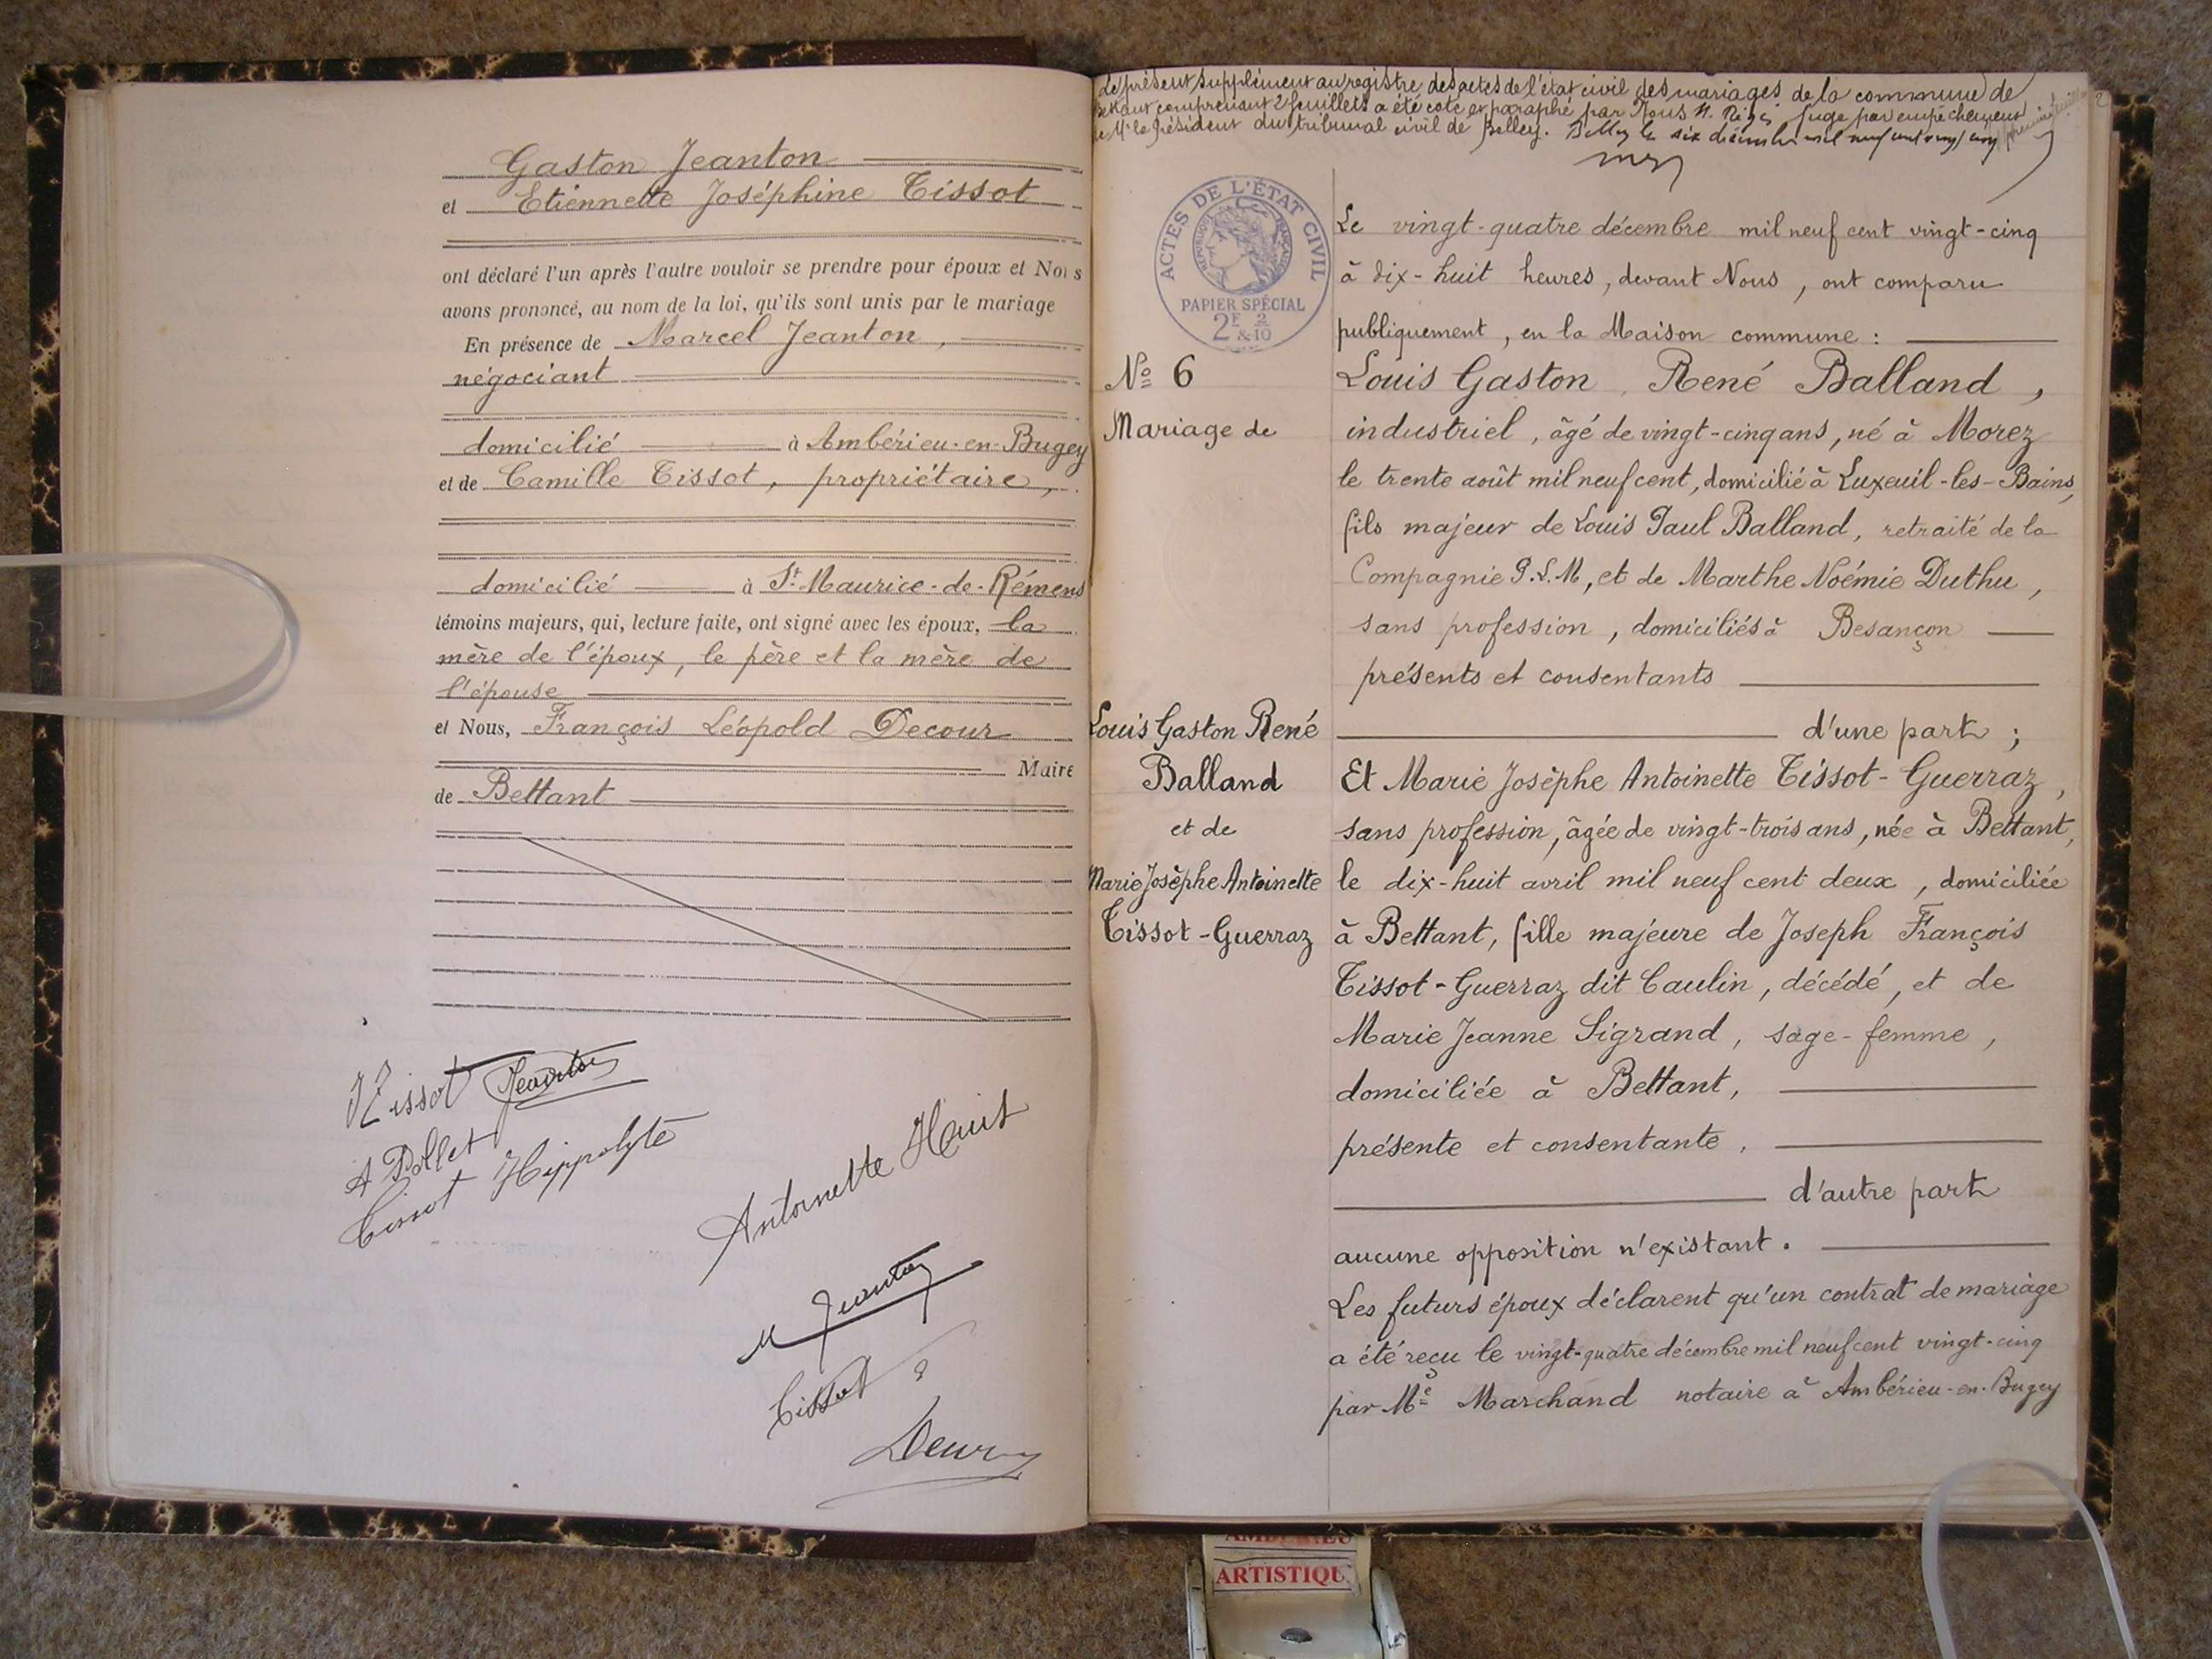 Gaston Jeanton
et Etiennette Joséphine Tissot
ont déclaré l'un après l'autre vouloir se prendre pour époux et Nous
avons prononcé, au nom de la loi, qu'ils sont unis par le mariage
En présence de Marcel Jeanton,
négociant
domicilié à Ambérieu-en-Bugey
et de Camille Tissot, propriétaire,
domicilié à St-Maurice-de-Rémens
témoins majeurs, qui, lecture faite, ont signé avec les époux, la
mère de l'époux, le père et la mère de
l'épouse
et Nous, François Léopold Decour
Maire
de Bettant
Tissot Jeanton
A Pollet
Tissot Hippolyte
Antoinette Huit
M Jeanton
Tissot
Decour
Le présent supplément au registre des actes de l'état civil des mariages de la commune de
Bettant comprenant 2 feuillets a été coté et paraphé par Nous juge par empêchement
de Mr le Président du tribunal civil de Belley. Belley le six décembre mil neuf cent vingt cinq
ACTES DE L'ÉTAT CIVIL
RÉPUBLIQUE FRANÇAISE
PAPIER SPÉCIAL
2F 2
&10
No 6
Mariage de
Louis Gaston René
Balland
et de
Marie Josèphe Antoinette
Tissot-Guerraz
Le vingt-quatre décembre mil neuf cent vingt-cinq
à dix-huit heures, devant Nous, ont comparu
publiquement, en la Maison commune :
Louis Gaston René Balland,
industriel, âgé de vingt-cinq ans, né à Morez
le trente août mil neuf cent, domicilié à Luxeuil-les-Bains,
fils majeur de Louis Paul Balland, retraité de la
Compagnie P.L.M, et de Marthe Noémie Duthu,
sans profession, domiciliés à Besançon
présents et consentants
d'une part ;
Et Marie Josèphe Antoinette Tissot-Guerraz,
sans profession, âgée de vingt-trois ans, née à Bettant,
le dix-huit avril mil neuf cent deux, domiciliée
à Bettant, fille majeure de Joseph François
Tissot-Guerraz dit Caulin, décédé, et de
Marie Jeanne Sigrand, sage-femme,
domiciliée à Bettant,
présente et consentante.
d'autre part
aucune opposition n'existant.
Les futurs époux déclarent qu'un contrat de mariage
a été reçu le vingt-quatre décembre mil neuf cent vingt-cinq
par Me Marchand notaire à Ambérieu-en-Bugey
ARTISTIQU